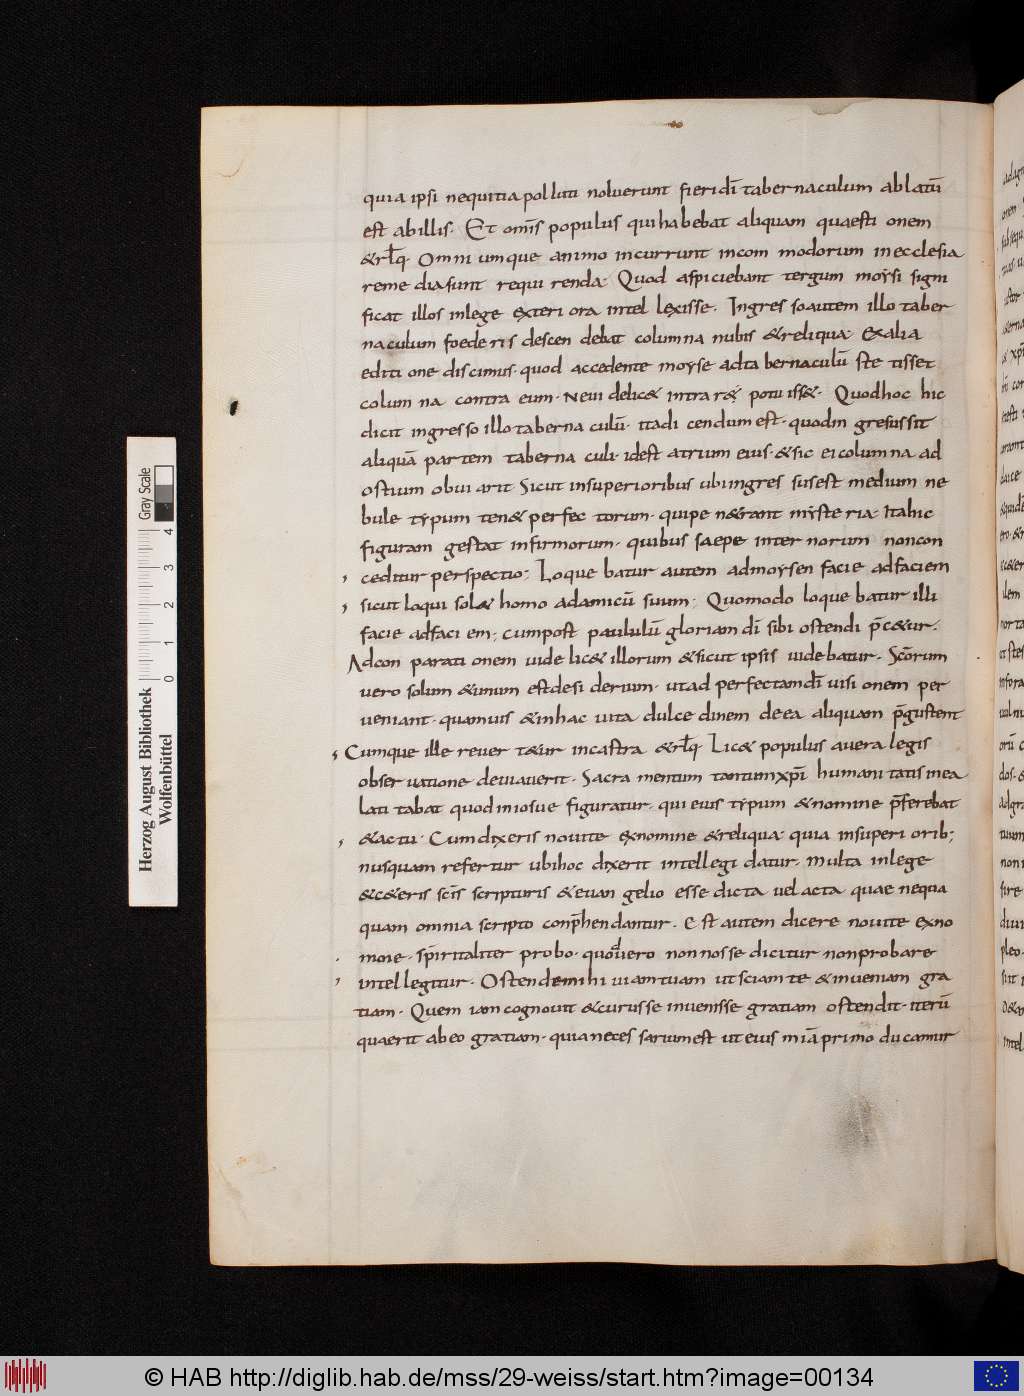 quia ipsi nequitia polluti noluerunt fieri dī tabernaculum ablatū
est ab illis. Et om̄s populus qui habebat aliquam quaestionem
&rl̄q. Omni umque animo incurrunt incommodorum in ecclesia
remedia sunt requirenda. Quod aspiciebant tergum moysi signi
ficat illos in lege exteriora intellexisse. Ingresso autem illo taber
naculum foederis descendebat columna nubis &reliqua. Ex alia
editione discimus. quod accedente moyse ad tabernaculū stetisset
columna contra eum. Ne uidelic& intrar& potuiss&. Quod hoc hic
dicit ingresso illo tabernaculū. ita dicendum est. quod ingressus sit
aliquā partem tabernaculi. id est atrium eius. &sic ei columna ad
ostium obuiarit. Sicut in superioribus ubi ingressus est medium ne
bule typum ten& perfectorum. quipe n&rant mysteria. Ita hic
figuram gestat infirmorum. quibus saepe internorum non con
ceditur perspectio; Loquebatur autem ad moysen facie ad faciem
sicut loqui sol& homo ad amicū suum; Quomodo loquebatur illi
facie ad faciem; cum post paululū gloriam dī sibi ostendi p̄c&ur.
Ad conparationem uidelic& illorum &sicut ipsis uidebatur. Sc̄orum
uero solum &unum est desiderium. ut ad perfectam dī uisionem per
ueniant. quamuis &in hac uita dulcedinem de ea aliquam p̄gustent
Cumque ille reuert&ur in castra &rl̄q. Lic& populus a uera legis
obseruatione deuiauerit. Sacramentum tantum xp̄i humanitatis in ea
latitabat quod in iosue figuratur. qui eius typum &nomine p̄ferebat
&actu. Cum dixeris noui te ex nomine &reliqua. quia in superiorib;
nusquam refertur ubi hoc dixerit intellegi datur. Multa in lege
&c&eris sc̄is scripturis &euangelio esse dicta uel acta quae nequa
quam omnia scripto conp̄hendantur. Est autem dicere noui te ex no
mine. sp̄iritaliter probo. quod uero non nosse dicitur non probare
intellegitur. Ostende mihi uiam tuam ut sciam te &inueniam gra
tiam. Quem iam cognouit &cuius se inuenisse gratiam ostendit. iterū
quaerit ab eo gratiam. quia necessarium est ut eius miā primo ducamur
Herzog August Bibliothek
Wolfenbüttel
Gray Scale
0 1 2 3 4
© HAB http://diglib.hab.de/mss/29-weiss/start.htm?image=00134